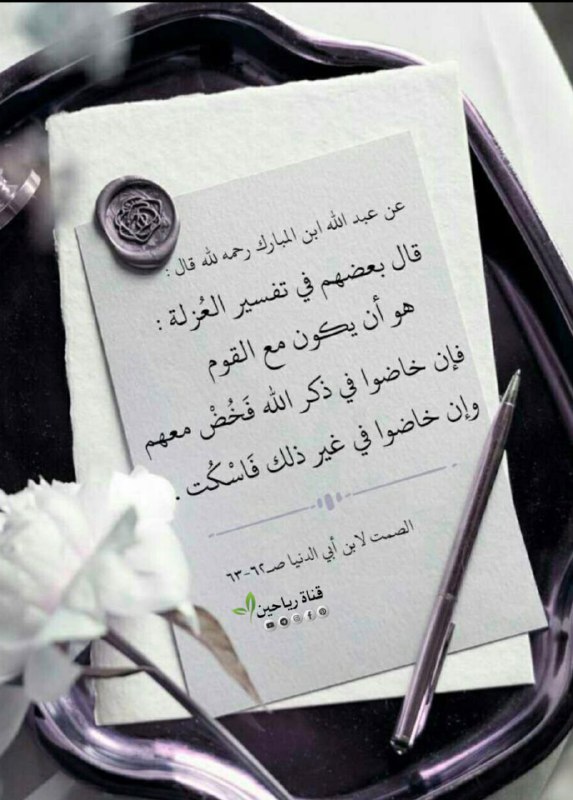 عن عبد الله ابن المبارك رحمه لله قال :
قال بعضهم في تفسير العُزلة :
هو أن يكون مع القوم
فإن خاضوا في ذكر الله فَخُضْ معهم
وإن خاضوا في غير ذلك فَاسْكُت .
الصمت لابن أبي الدنيا صـ٦٢-٦٣
قناة رياحين